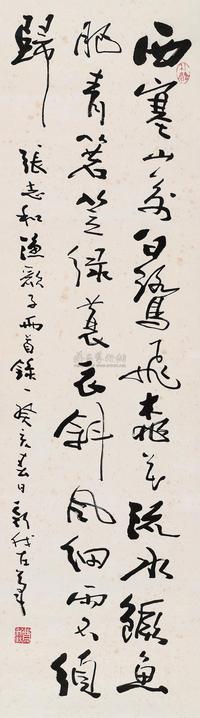 西塞山前白鷺飛桃花流水鱖魚
肥青箬笠綠蓑衣斜風細雨不須
歸
張志和漁歌子兩首錄一癸亥春日新我左筆